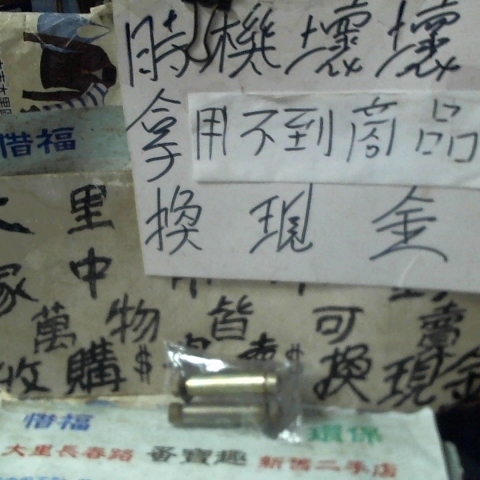 時機壞壞
拿用不到商品
換現金
惜福
大里
家中
萬物皆可賣
收購$ $換現金
惜福 環保
大里長春路 番寶趣 新舊二手店